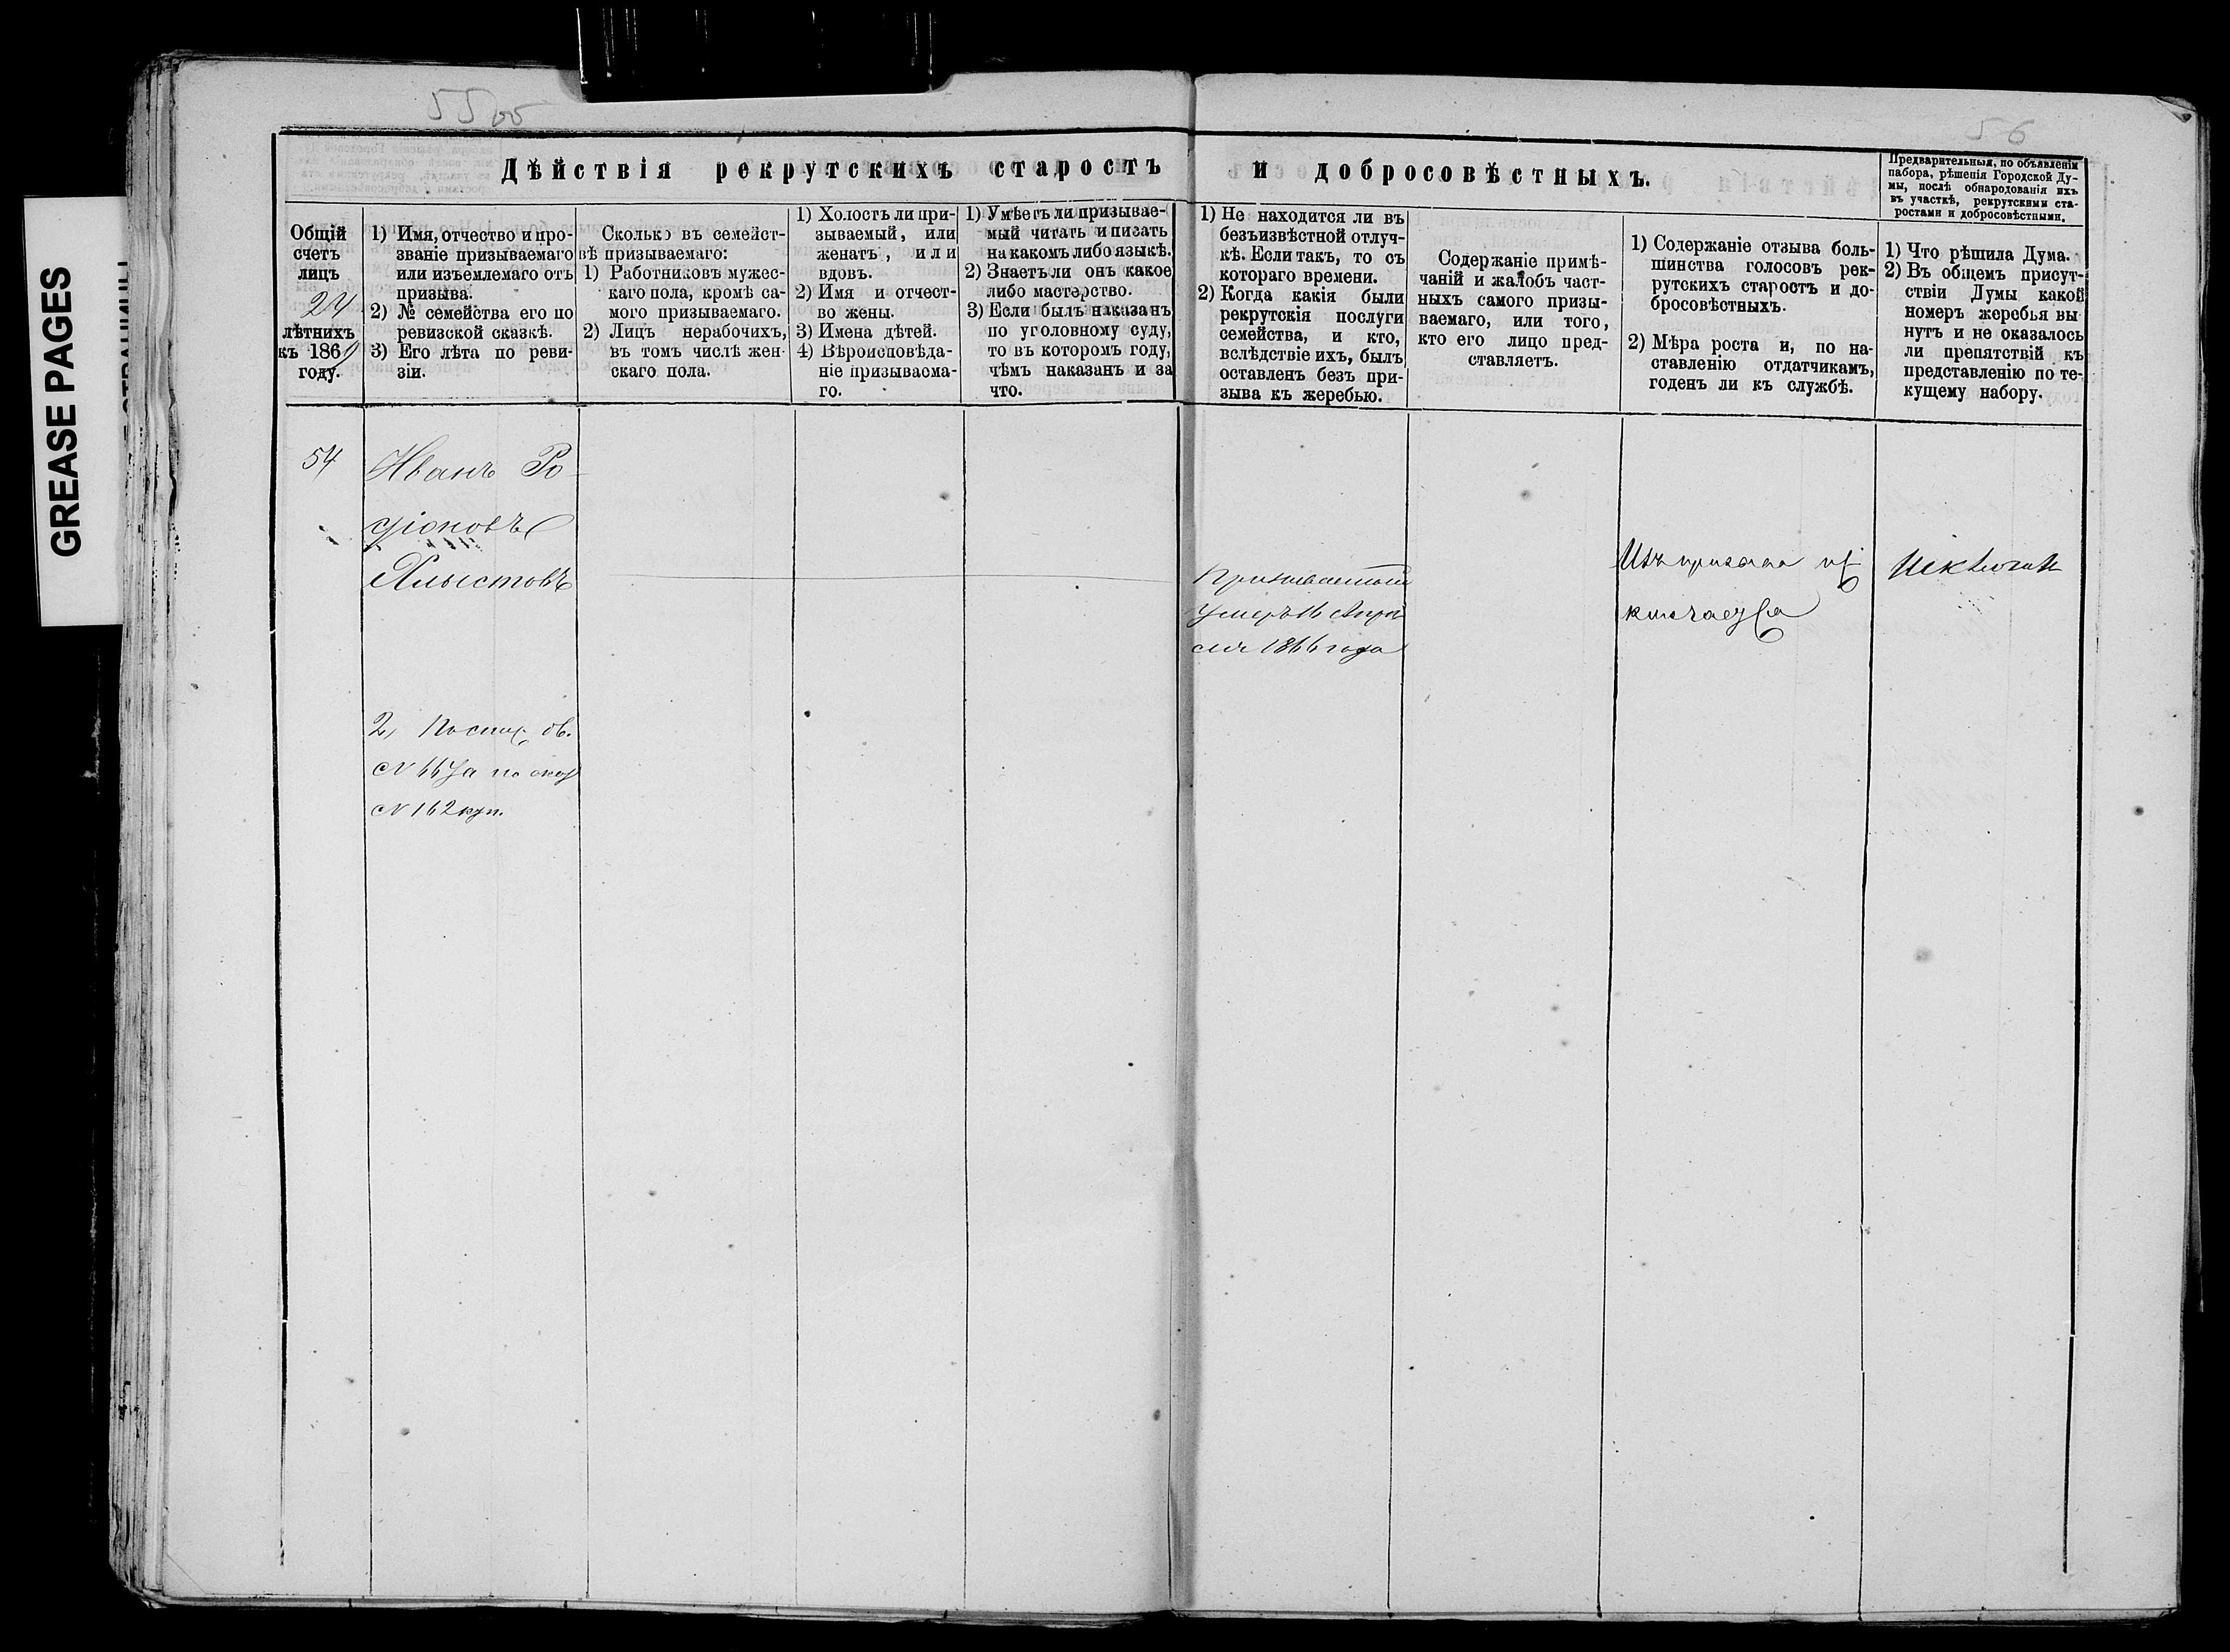 GREASE PAGES
55об
56
Дѣйствія рекрутскихъ старостъ и добросовѣстныхъ.
Предварительныя, по объявленіи
набора, рѣшенія Городской Ду-
мы, послѣ обнародованія ихъ
въ участкѣ, рекрутскими ста-
ростами и добросовѣстными.
Общій
счетъ
лицъ
24
лѣтнихъ
къ 1869
году.
1) Имя, отчество и про-
званіе призываемаго
или изъемлемаго отъ
призыва.
2) № семейства его по
ревизской сказкѣ.
3) Его лѣта по реви-
зіи.
Сколько въ семейст-
вѣ призываемаго:
1) Работниковъ мужес-
каго пола, кромѣ са-
мого призываемаго.
2) Лицъ нерабочихъ,
въ томъ числѣ жен-
скаго пола.
1) Холостъ ли при-
зываемый, или
женатъ, или
вдовъ.
2) Имя и отчест-
во жены.
3) Имена дѣтей.
4) Вѣроисповѣда-
ніе призываема-
го.
1) Умѣетъ ли призывае-
мый читать и писать
на какомъ либо языкѣ.
2) Знаетъ ли онъ какое
либо мастерство.
3) Если былъ наказанъ
по уголовному суду,
то въ которомъ году,
чѣмъ наказанъ и за
что.
1) Не находится ли въ
безъизвѣстной отлуч-
кѣ. Если такъ, то съ
котораго времени.
2) Когда какія были
рекрутскія послуги
семейства, и кто,
вслѣдствіе ихъ, былъ
оставленъ безъ при-
зыва къ жеребью.
Содержаніе примѣ-
чаній и жалобъ част-
ныхъ самого призы-
ваемаго, или того,
кто его лицо пред-
ставляетъ.
1) Содержаніе отзыва боль-
шинства голосовъ рек-
рутскихъ старостъ и до-
бросовѣстныхъ.
2) Мѣра роста и, по на-
ставленію отдатчикамъ,
годенъ ли къ службѣ.
1) Что рѣшила Дума.
2) Въ общемъ присут-
ствіи Думы какой
номеръ жеребья вы
нутъ и не оказалось
ли препятствій къ
представленію по те-
кущему набору.
54
Иванъ Ро-
діоновъ
Хлыстовъ
2,
№ 162 куп.
Призываемый
умеръ 16 Апрѣ
ля 1866 года
Изъ призыва ис
ключается
Исключить